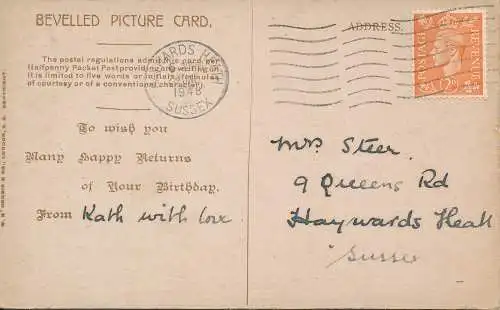 BEVELLED PICTURE CARD.
The postal regulations admit this card per
Halfpenny Packet Post providing any writing on
it is limited to five words or initials, formulas
of courtesy or of a conventional character.
To wish you
Many Happy Returns
of Your Birthday.
From Kath with love
HAYWARDS HEATH
1948
SUSSEX
ADDRESS.
POSTAGE
REVENUE
2D
Mrs Steer
9 Queens Rd
Haywards Heath
Sussex